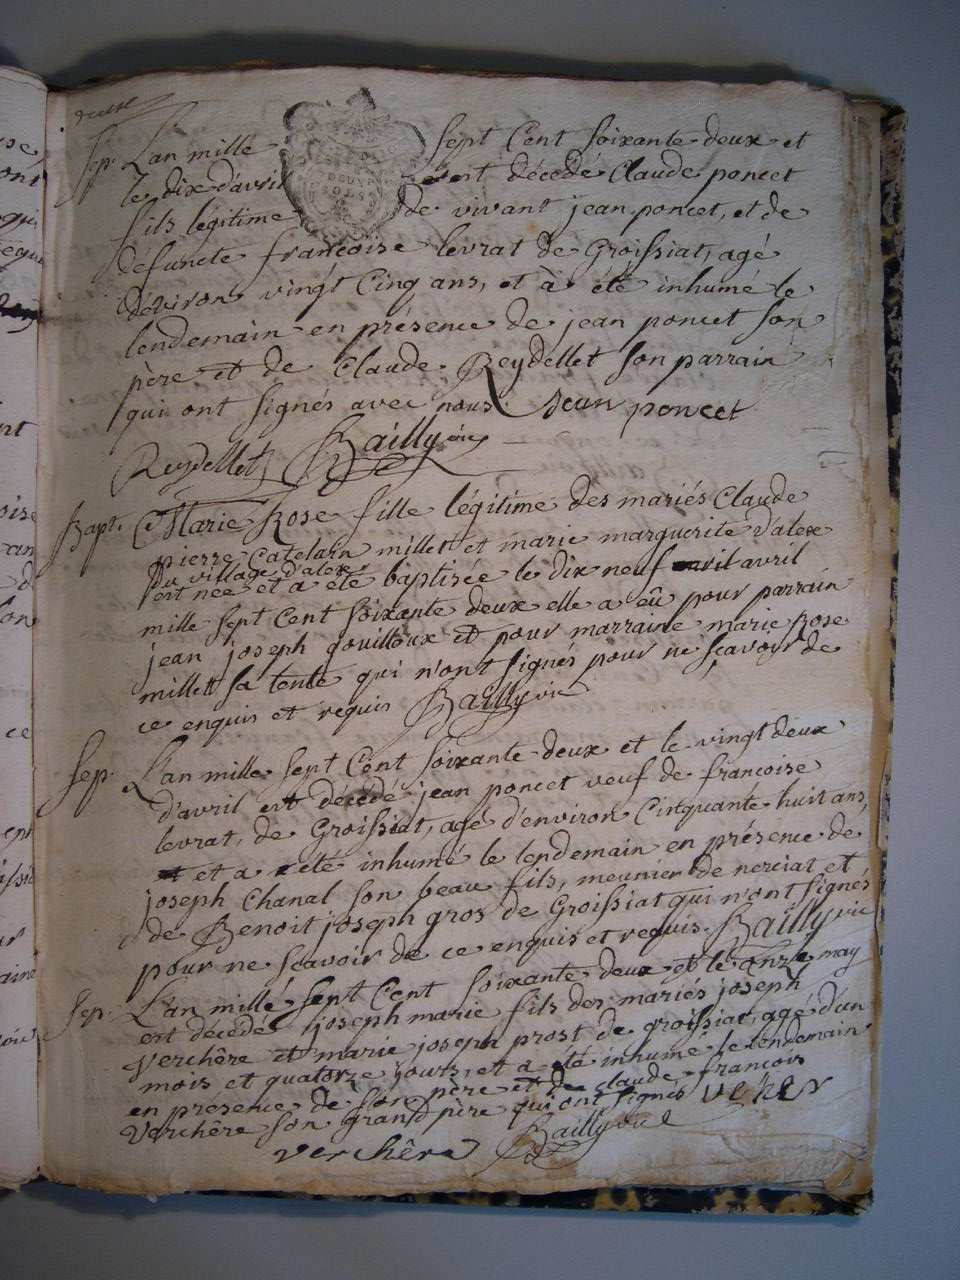 Sep. L'an mille sept Cent soixante deux et
le dix d'avril est décédé Claude poncet
fils légitime de vivant jean poncet, et de
defuncte françoise levrat de Groissiat, agé
d'environ vingt Cinq ans, et à été inhumé le
lendemain en présence de jean poncet son
père et de Claude Reydellet son parrain
qui ont signés avec nous. Jean poncet
Reydellet Bailly vic
Bapt. Marie Rose fille légitime des mariés Claude
pierre Catelain millet et marie marguerite d'alex
du village d'alex
est née et a été baptisée le dix neuf avril
mille sept Cent soixante deux elle a eû pour parrain
jean joseph gouilloux et pour marraine marie Rose
millett sa tente qui n'ont signés pour ne sçavoir de
ce enquis et requis Bailly vic
Sep. L'an mille sept Cent soixante deux et le vingt deux
d'avril est décédé jean poncet veuf de francoise
levrat, de Groissiat, agé d'environ Cinquante huit ans,
et a été inhumé le lendemain en présence de
joseph Chanal son beau fils, meunier de nerciat et
de Benoit joseph gros de Groissiat qui n'ont signés
pour ne scavoir de ce enquis et requis. Bailly vic
Sep. L'an mille sept Cent soixante deux et le onze may
est décédé joseph marie fils des mariés joseph
verchère et marie joseph prost de groissiat, agé d'un
mois et quatorze jours, et a été inhumé le lendemain
en présence de son père et de claude francois
verchère son grand père qui ont signés
verchère Bailly vic